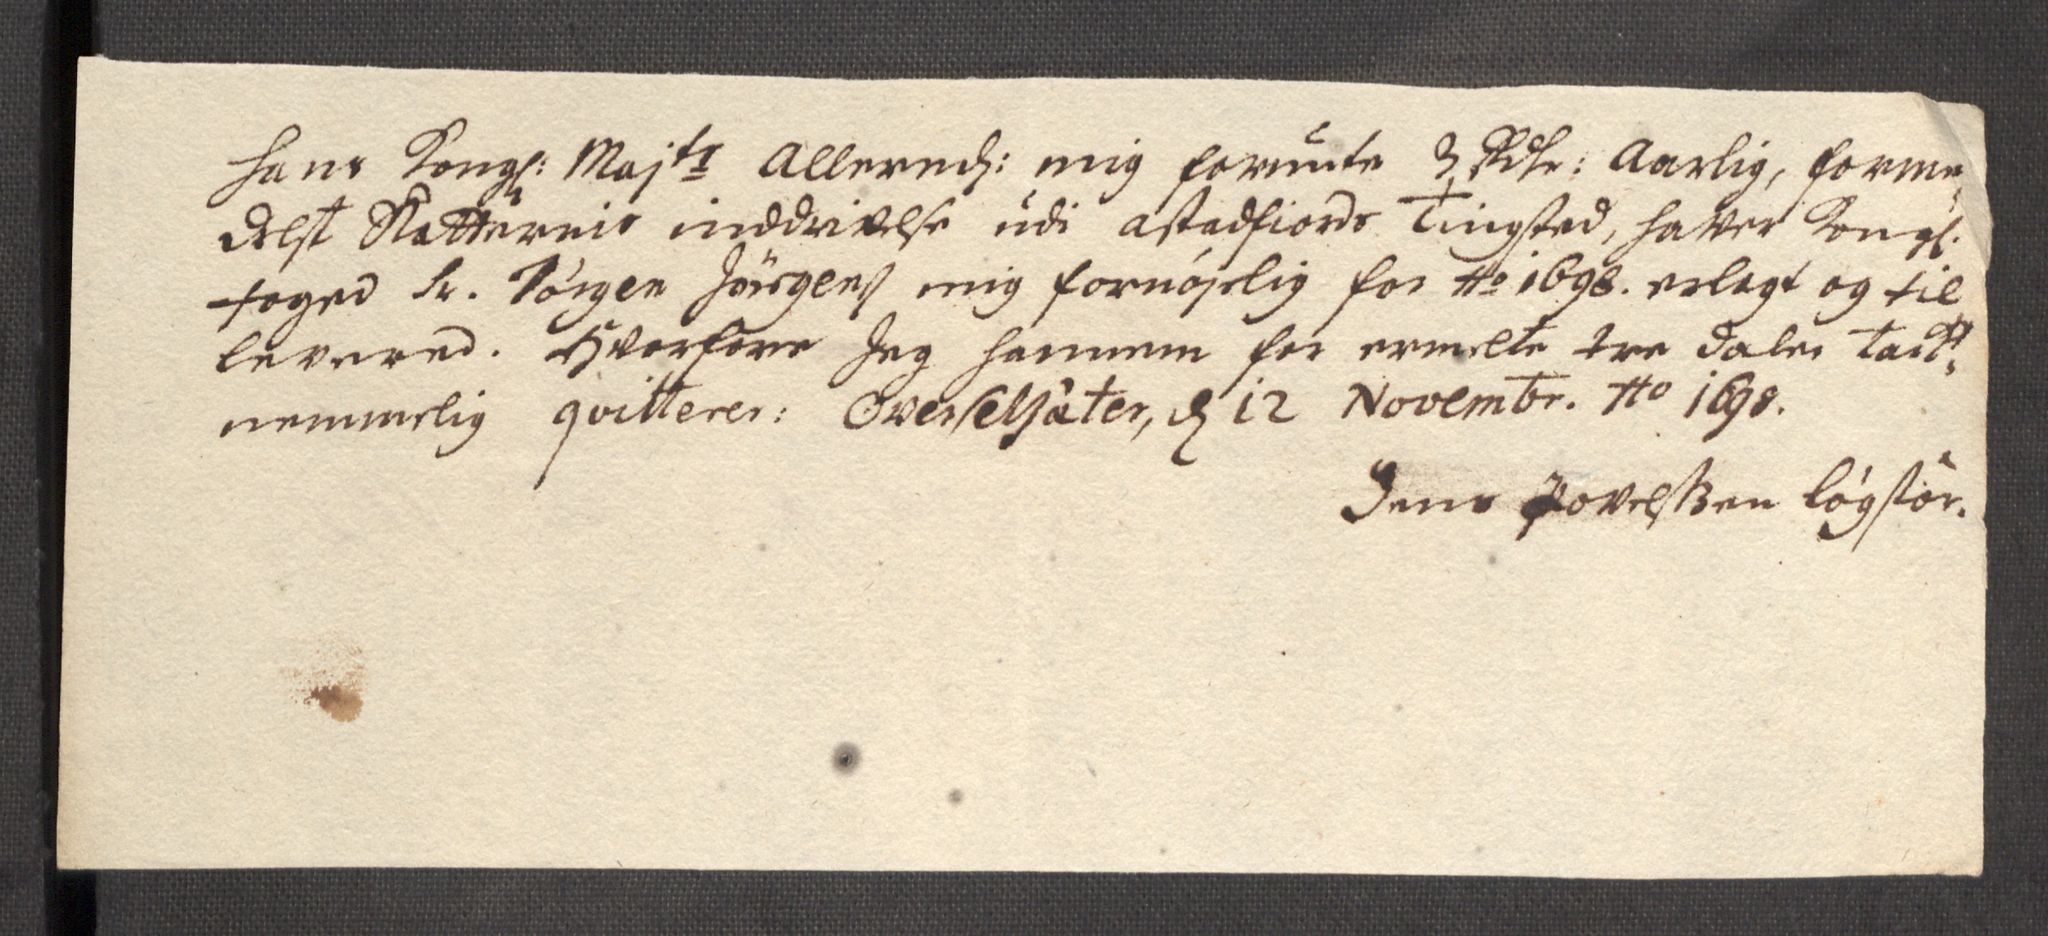 Hans Kongl: Majts Allernd: mig forunte 3 Rdlr: Aarlig, forme¬
delst Skatternis inddrivelse udi Astadfiords Tingsted, haver Kongl.
foged Sr. Jörgen Jörgens mig fornöjelig for Ao 1698. erlagt og til
levered. Hvorfore Jeg hannem for ermelte tre daler tack¬
nemmelig qvitterer: Overseljäter, d 12 Novembr. Ao 1698.
Jens Povelssen Lögstör.